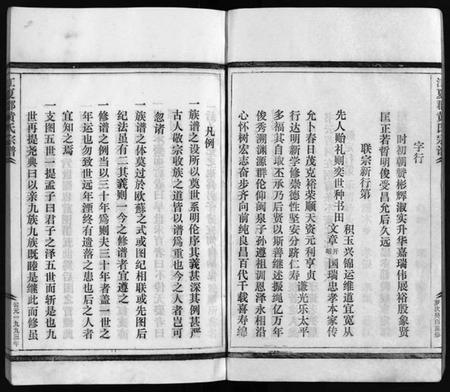 字行
时初朝赞彬辉淑实升华嘉瑞伟展裕股象贤
匡正若哲明俊受昌允后久远
联宗新行第
积玉兴锡运维道宜宽从
先人贻礼则奕世种书田
文章开国瑞忠孝本家传
允卜春日茂克裕荣顺天资元利享贞
谦光乐太平
行达明新学修崇德性坚安分跻仁寿
多福其自求丕承乃后贤以斯善继述振绳亿万年
俊秀溯渊源群伦仰闽泉子孙遵祖训恩泽永相沿
心怀树宏志奋步齐向前纯良昌百代千载喜寿绵
凡例
一族谱之设所以奠世系明伦序其义甚深其例甚严
古人敬宗收族之道皆以谱为重也今之人者岂可
忽诸
一族谱之体莫过于欧苏之式或图纪相联或先图后
纪法虽有二其义则一今之修谱者宜遵之
一修谱之例当以三十年为则夫三十年者盖一世之
年运也勿致世远年湮终有遗落之患也后之人者
宜知之焉
一支图五世一提孟子曰君子之泽五世而斩是也九
世再提尧典曰以亲九族九族既睦是继此而修虽
江夏郡黄氏宗谱
公元一九九三年
江夏郡黄氏宗谱